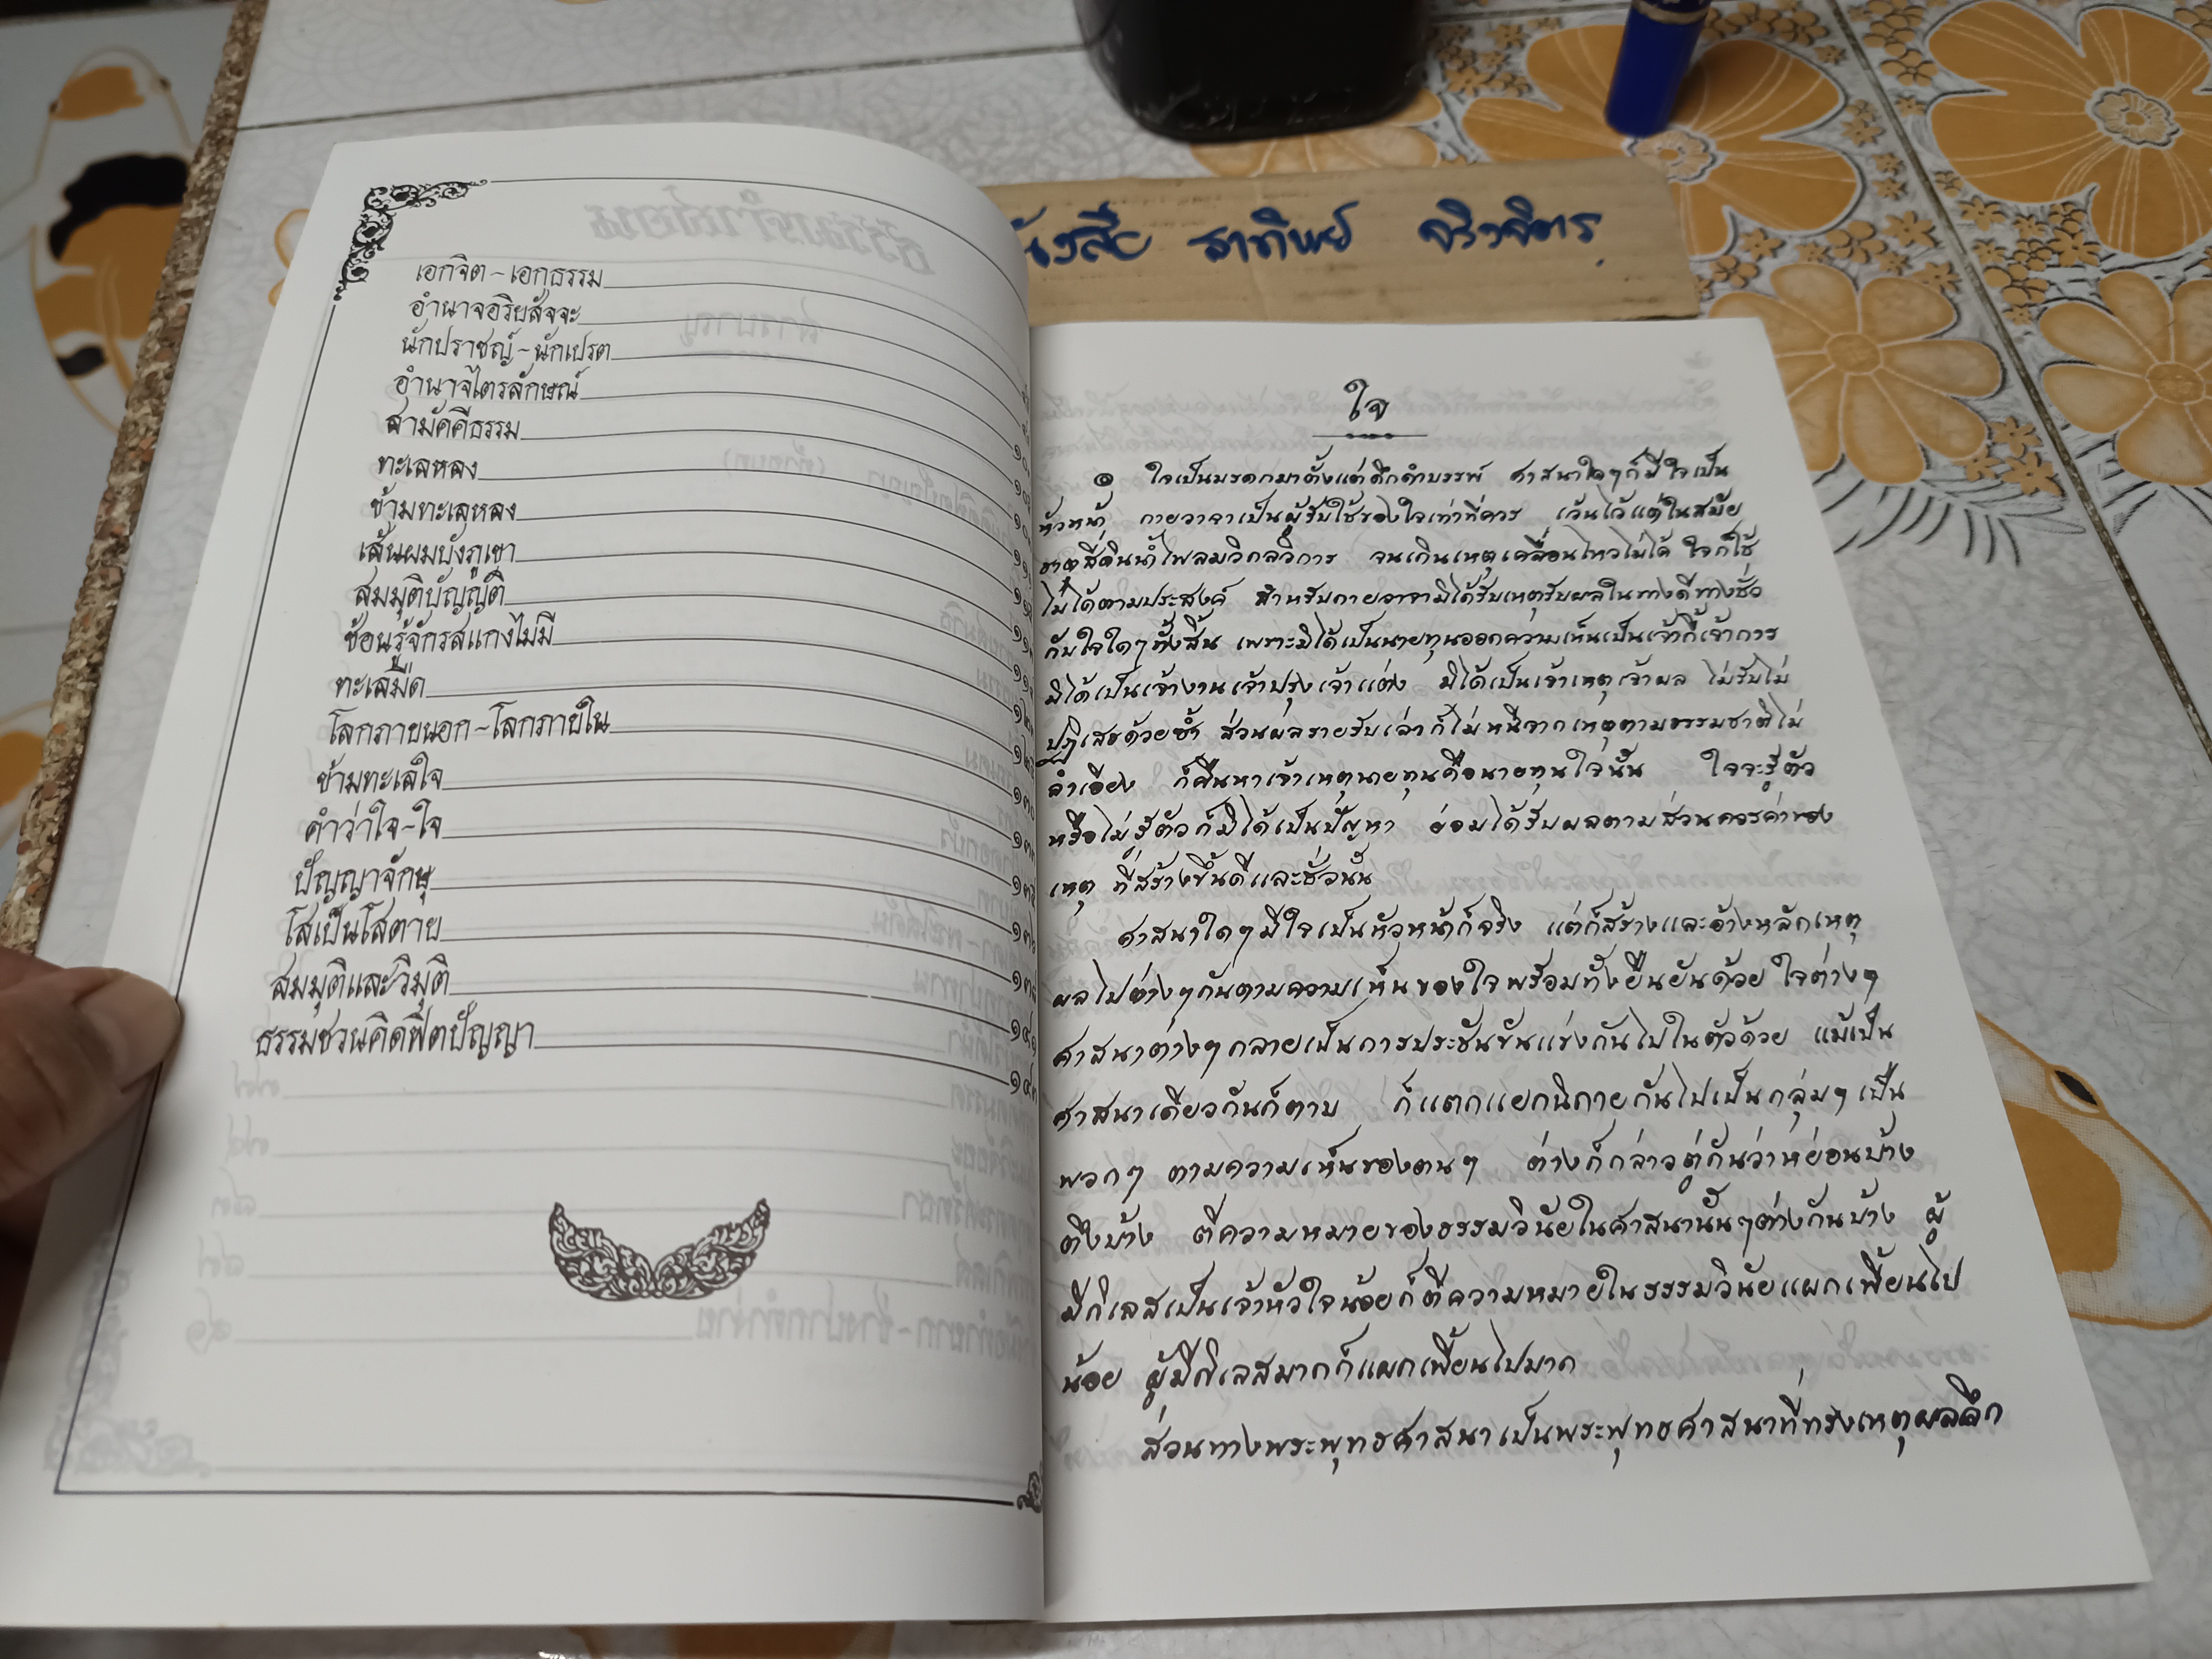 เอกจิต - เอกธรรม
อำนาจอริยสัจจะ
นักปราชญ์ - นักเปรต
อำนาจไตรลักษณ์
สามัคคีธรรม
ทะเลหลง
ข้ามทะเลหลง
เส้นผมบังภูเขา
สมมุติบัญญัติ
ช้อนรู้จักรสแกงไม่มี
ทะเลมืด
โลกภายนอก - โลกภายใน
ข้ามทะเลใจ
คำว่าใจ - ใจ
ปัญญาจักษุ
โสเป็นโสตาย
สมมุติและวิมุติ
ธรรมชวนคิดฟิตปัญญา ๑๔๓
ธาทิพย์
ใจ
๑ ใจเป็นมรดกมาตั้งแต่ดึกดำบรรพ์ ศาสนาใดๆก็มีใจเป็น
หัวหน้า กายวาจาเป็นผู้รับใช้ของใจเท่าที่ควร เว้นไว้แต่ในสมัย
ธาตุสี่ดินน้ำไฟลมวิกลวิการ จนเกินเหตุเคลื่อนไหวไม่ได้ ใจก็ใช้
ไม่ได้ตามประสงค์ สำหรับกายวาจามิได้รับเหตุรับผลในทางดีทางชั่ว
กับใจใดๆทั้งสิ้น เพราะมิได้เป็นนายทุนออกความเห็นเป็นเจ้ากี้เจ้าการ
มิได้เป็นเจ้างานเจ้าปรุงเจ้าแต่ง มิได้เป็นเจ้าเหตุเจ้าผล ไม่รับไม่
ปฏิเสธด้วยซ้ำ ส่วนผลรายรับเล่าก็ไม่หนีจากเหตุตามธรรมชาติไม่
ลำเอียง ก็คืนหาเจ้าเหตุนายทุนคือนายทุนใจนั้น ใจจะรู้ตัว
หรือไม่รู้ตัวก็มิได้เป็นปัญหา ย่อมได้รับผลตามส่วนควรค่าของ
เหตุ ที่สร้างขึ้นดีและชั่วนั้น
ศาสนาใดๆมีใจเป็นหัวหน้าก็จริง แต่ก็สร้างและอ้างหลักเหตุ
ผลไปต่างๆกันตามความเห็นของใจพร้อมทั้งยืนยันด้วย ใจต่างๆ
ศาสนาต่างๆกลายเป็นการประชันขันแข่งกันไปในตัวด้วย แม้เป็น
ศาสนาเดียวกันก็ตาม ก็แตกแยกนิกายกันไปเป็นกลุ่มๆเป็น
พวกๆ ตามความเห็นของตนๆ ต่างก็กล่าวตู่กันว่าหย่อนบ้าง
ตึงบ้าง ตีความหมายของธรรมวินัยในศาสนานั้นๆต่างกันบ้าง ผู้
มีกิเลสเป็นเจ้าหัวใจน้อยก็ตีความหมายในธรรมวินัยแผกเพี้ยนไป
น้อย ผู้มีกิเลสมากก็แผกเพี้ยนไปมาก
ส่วนทางพระพุทธศาสนาเป็นพระพุทธศาสนาที่ทรงเหตุผลลึก